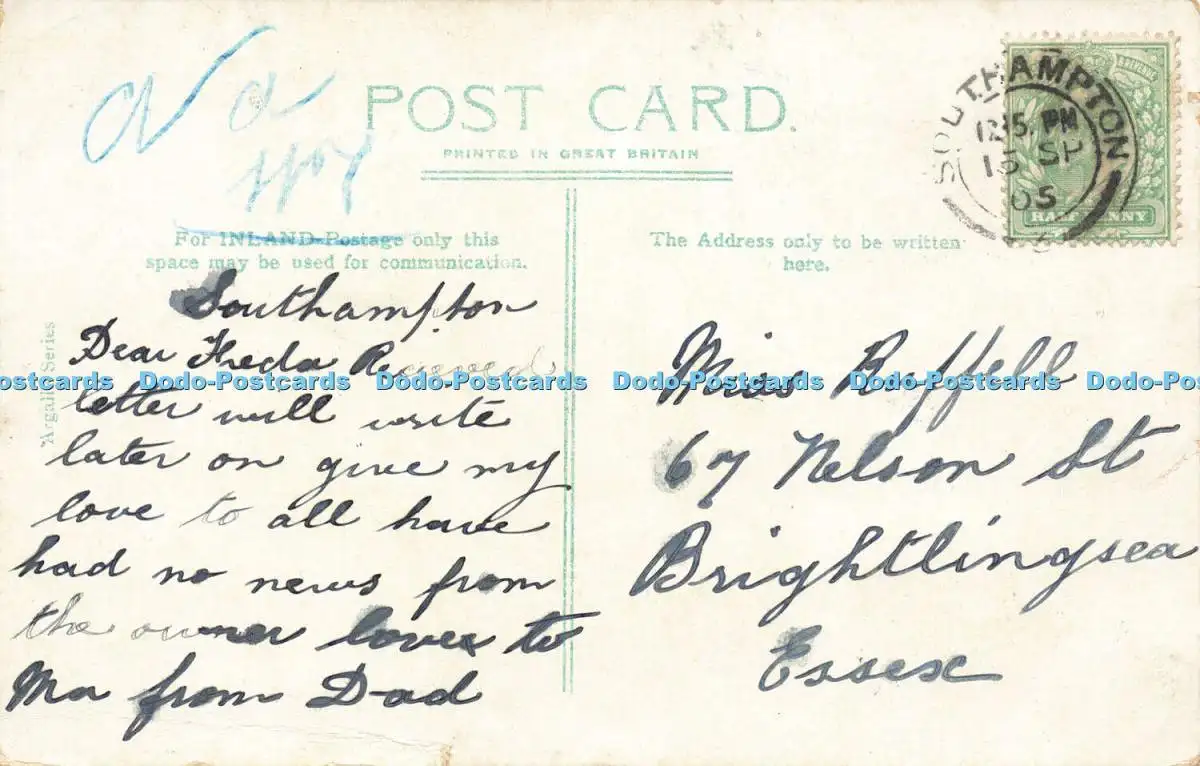 POST CARD.
PRINTED IN GREAT BRITAIN
For INLAND Postage only this
space may be used for communication.
The Address only to be written
here.
SOUTHAMPTON
12.15 PM
15 SP
05
HALFPENNY
Argall Series
Southampton
Dear Freda Recieved
letter will write
later on give my
love to all have
had no news from
the owner loves to
Ma from Dad
Miss Ruffell
67 Nelson St
Brightlingsea
Essex
Dodo-Postcards Dodo-Postcards Dodo-Postcards Dodo-Postcards Dodo-Postcards Dodo-Postcards